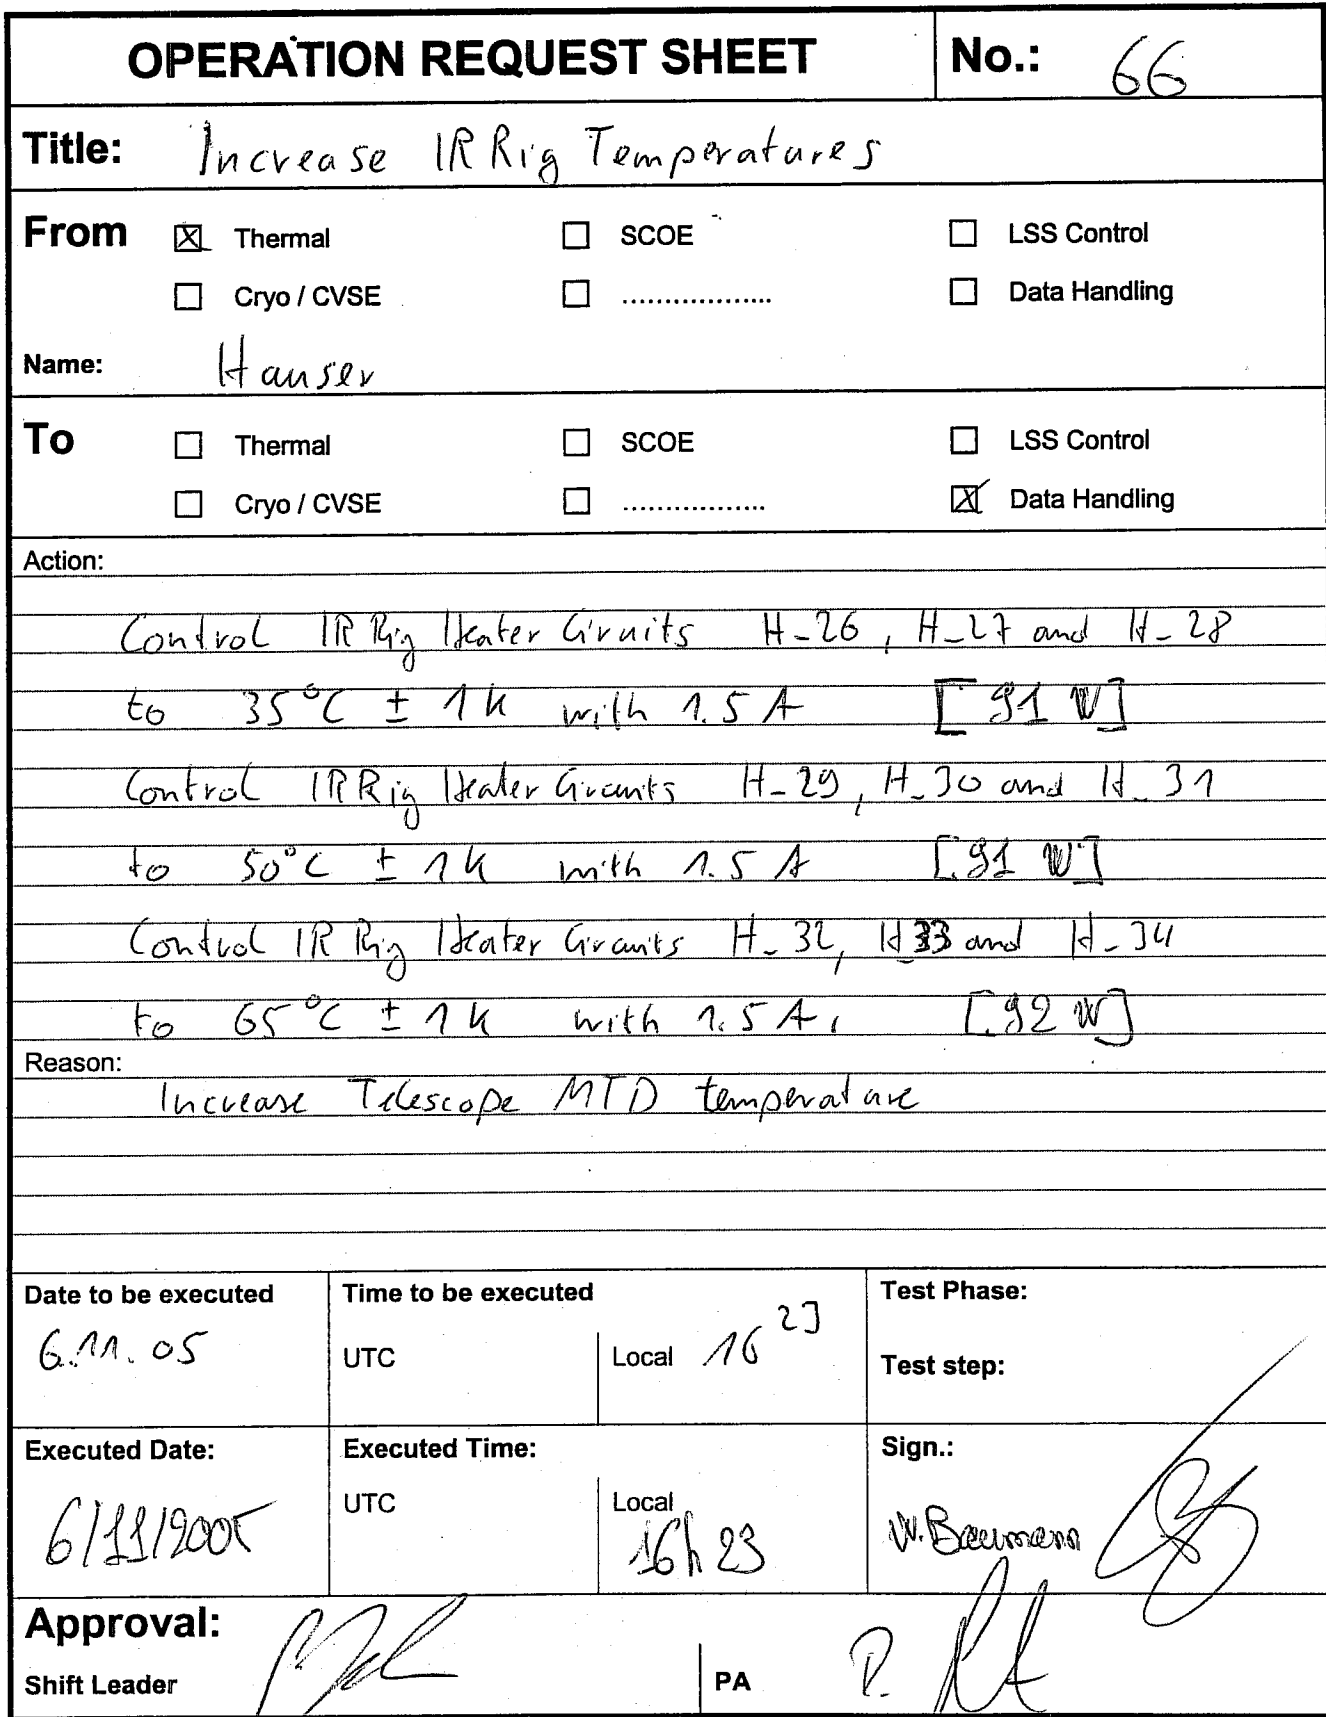 OPERATION REQUEST SHEET No.: 66
Title: Increase IR Rig Temperatures
From ☒ Thermal ☐ SCOE ☐ LSS Control
☐ Cryo / CVSE ☐ .................. ☐ Data Handling
Name: Hauser
To ☐ Thermal ☐ SCOE ☐ LSS Control
☐ Cryo / CVSE ☐ ................. ☒ Data Handling
Action:
Control IR Rig Heater Circuits H_26, H_27 and H_28
to 35°C ± 1K with 1.5 A [91 W]
Control IR Rig Heater Circuits H_29, H_30 and H_31
to 50°C ± 1K with 1.5 A [91 W]
Control IR Rig Heater Circuits H_32, H_33 and H_34
to 65°C ± 1K with 1.5 A, [92 W]
Reason:
Increase Telescope MTD temperature
Date to be executed Time to be executed Test Phase:
6.11.05 UTC Local 16 23
Test step:
Executed Date: Executed Time: Sign.:
6/11/2005 UTC Local 16h23 W. Baumann
Approval:
Shift Leader PA P.